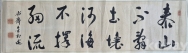 泰山
不辭
土壤
河海
不擇
細流